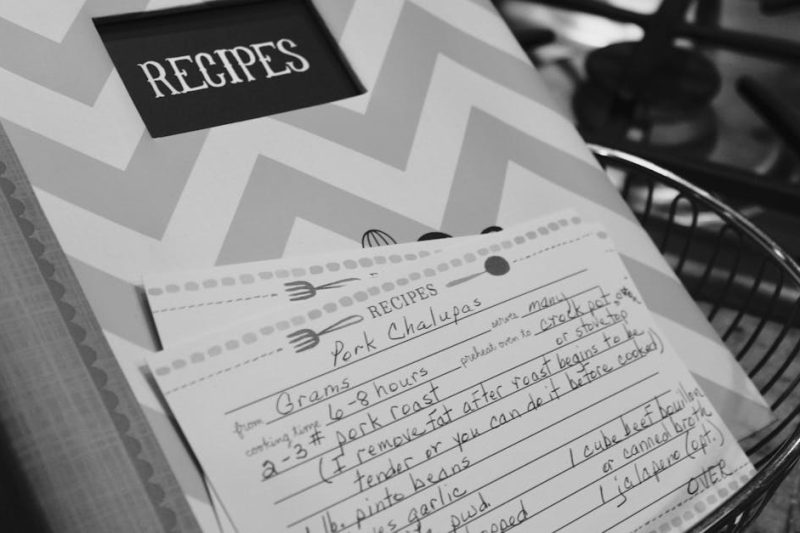 RECIPES
RECIPES
Pork Chalupas
from Grams serves many
cooking time 6-8 hours preheat oven to crock pot
or stove top
2-3# pork roast
(I remove fat after roast begins to be
tender or you can do it before cooked)
lb. pinto beans 1 cube beef bouillon
garlic or canned broth
pwd. 1 jalapeno (opt.)
OVER